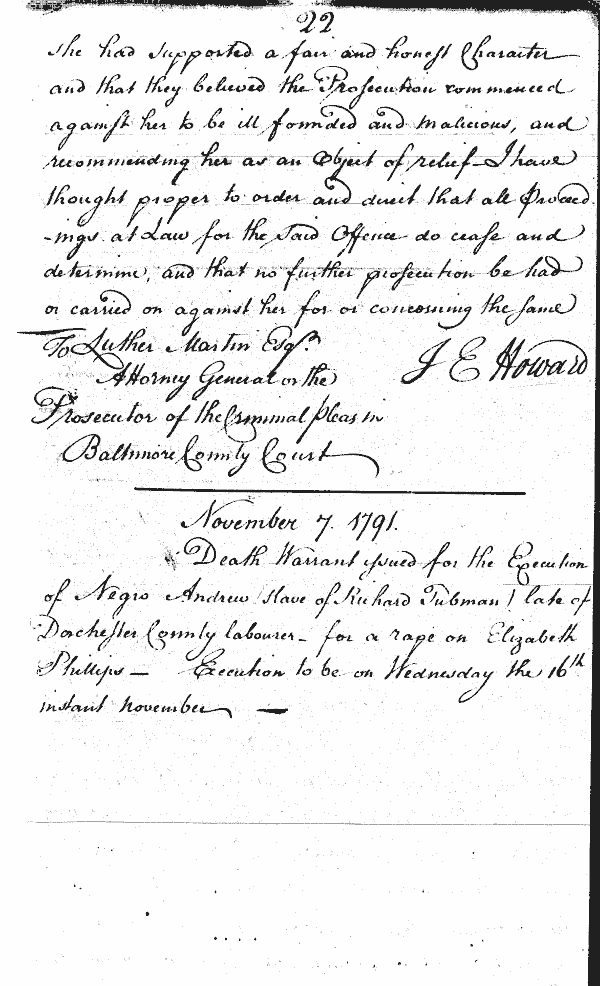 22
she had supported a fair and honest Character
and that they believed the Prosecution commenced
against her to be ill founded and malicious, and
recommending her as an Object of relief - I have
thought proper to order and direct that all Proceed
-ings at Law for the said Offence do cease and
determine, and that no further prosecution be had
or carried on against her for or concerning the same
To Luther Martin Esqr.
J E Howard
Attorney General or the
Prosecutor of the Criminal pleas in
Baltimore County Court
November 7. 1791.
Death Warrant issued for the Execution
of Negro Andrew (slave of Richard Tubman) late of
Dorchester County labourer - for a rape on Elizabeth
Phillips - Execution to be on Wednesday the 16th
instant November -